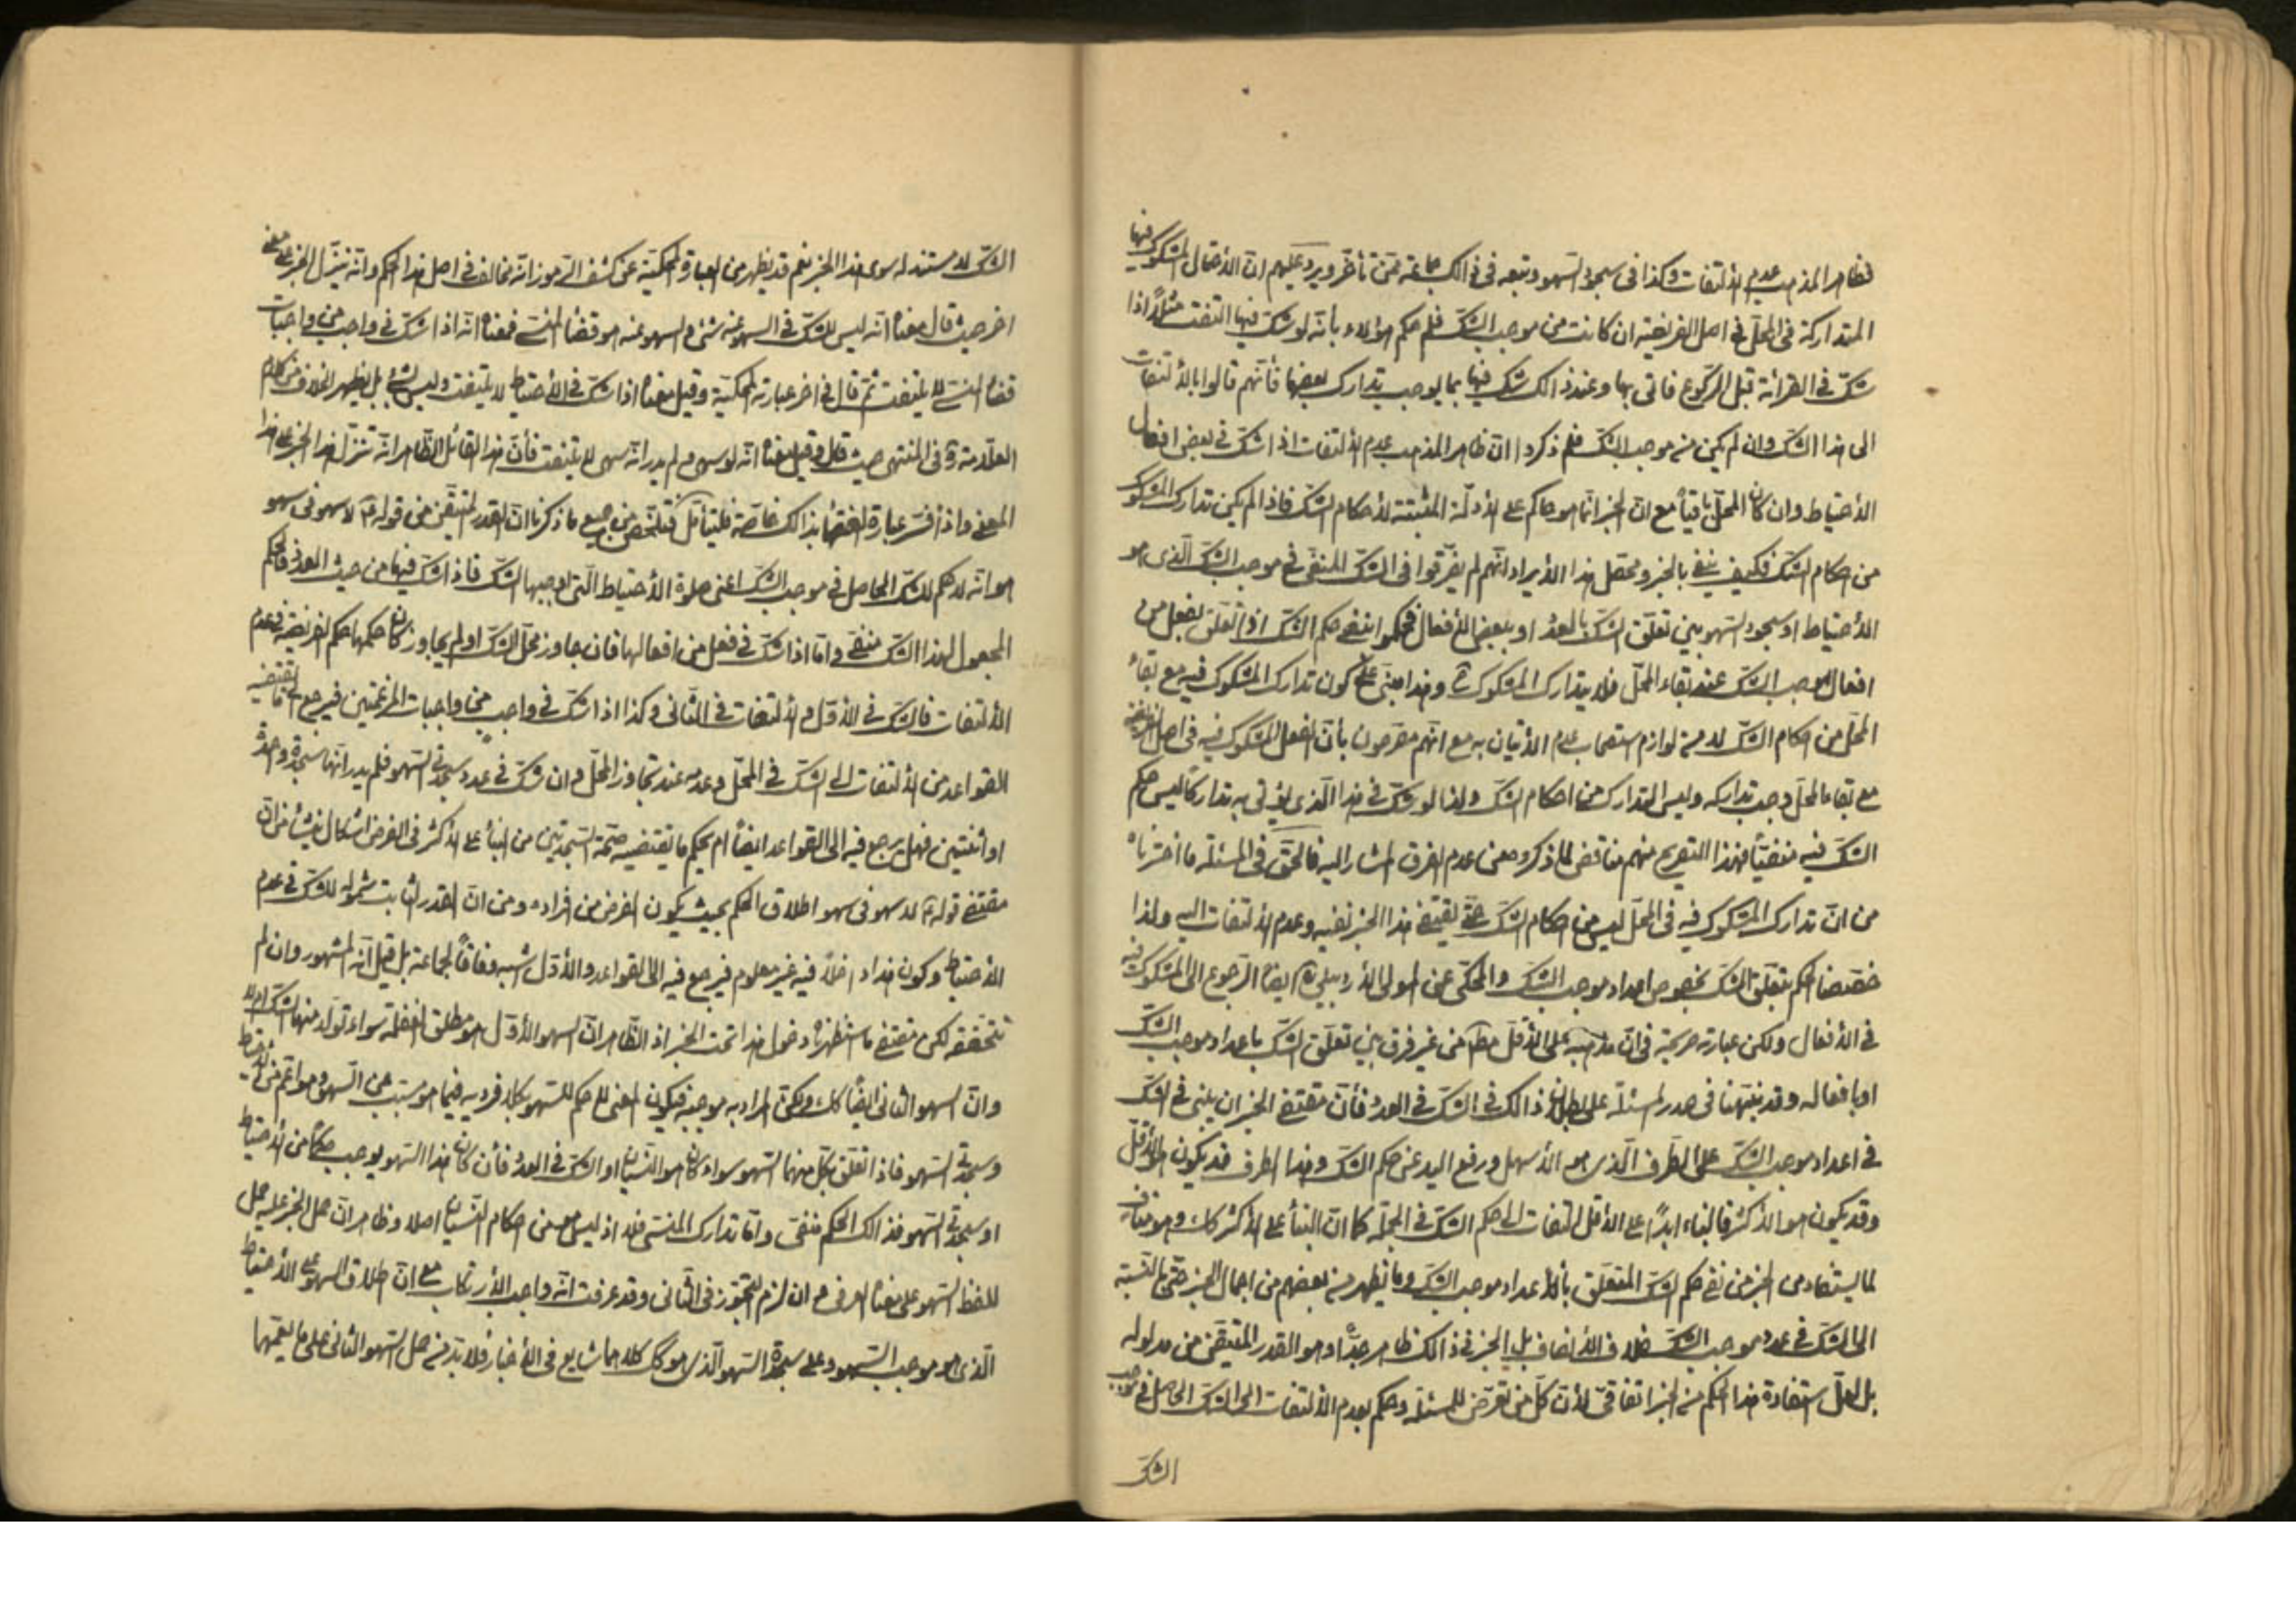 فظاهر المذهب عدم الالتفات وكذا فى سجود السهو وتبعه فى ذالك جماعة ممّن تأخّر ويرد عليهم انّ الأفعال المشكوك فيها
المتداركة فى المحلّ فى اصل الفريضة ان كانت من موجب الشكّ فلم حكم هؤلاء بأنّه لو شكّ فيها التفت مثلاً اذا
شكّ فى القرائة قبل الركوع فاتى بها وعند ذالك شكّ فيها بما يوجب تدارك بعضها فأنّهم قالوا بالألتفات
الى هذا الشكّ وان لم يكن من موجب الشكّ فلم ذكروا انّ ظاهر المذهب عدم الالتفات اذا شكّ فى بعض افعال
الأحتياط وان كان المحلّ باقياً مع انّ الخبر انّما هو حاكم على الأدلّة المثبتة لأحكام الشكّ فاذا لم يكن تدارك المشكوك
من احكام الشكّ فكيف ينفى بالخبر ومحصّل هذا الأيراد انّهم لم يفرّقوا فى الشكّ المنفى فى موجب الشكّ الّذى هو
الأحتياط او سجود السهو بين تعلّق الشكّ بالعدد او ببعض الأفعال فحكموا بنفى حكم الشكّ اذا تعلّق بفعل من
افعال موجب الشكّ عند بقاء المحلّ فلا يتدارك المشكوك وهذا مبنى على كون تدارك المشكوك فيه مع بقاء
المحلّ من احكام الشكّ لا من لوازم استصحاب عدم الأتيان به مع انّهم مصرّحون بأنّ الفعل المشكوك فيه فى اصل الفريضة
مع بقاء المحلّ وجب تداركه وليس التدارك من احكام الشكّ ولذا لو شكّ فى هذا الّذى يؤتى به تداركاً ليس حكم
الشكّ فيه منفيّاً فهذا التصريح منهم مناقض لما ذكروه من عدم الفرق المشار اليه فالحقّ فى المسئلة ما اخترناه
من انّ تدارك المشكوك فيه فى المحلّ ليس من احكام الشكّ حتّى يقتضى هذا الخبر نفيه وعدم الالتفات اليه ولذا
خصّصنا الحكم بتعلّق الشكّ بخصوص اعداد موجب الشكّ والمحكىّ عن المولى الأردبيلى ره ايضا الرجوع الى المشكوك فيه
فى الأفعال ولكن عبارته صريحة فى انّ مذهبه على الأقلّ مطلقا من غير فرق بين تعلّق الشكّ باعداد موجب الشكّ
او بافعاله وقد نبّهنا فى صدر المسئلة على بطلان ذالك فى الشكّ فى العدد فأنّ مقتضى الخبر ان يبنى فى الشكّ
فى اعداد موجب الشكّ على الطرف الّذى هو الأسهل ورفع اليد عن حكم الشكّ وهذا الطرف قد يكون هو الأقلّ
وقد يكون هو الأكثر فالبناء ابداً على الأقل التفات الى حكم الشكّ فى الجملة كما انّ البنأ على الأكثر كك وهو مناف
لما يستفاد من الخبر من نفى حكم الشكّ المتعلّق بأعداد موجب الشكّ وما يظهر من بعضهم من اجمال الخبر حتّى بالنسبة
الى الشكّ فى عدد موجب الشكّ خلاف الأنصاف بل الخبر فى ذالك ظاهر جدّاً وهو القدر المتيقّن من مدلوله
بل لعلّ استفادة هذا الحكم من الخبر اتفاقىّ لأنّ كلّ من تعرّض للمسئلة وحكم بعدم الالتفات الى الشكّ الحاصل فى موجب
الشكّ
الشكّ لا مستند له سوى هذا الخبر نعم قد يظهر من العبارة المحكيّة عن كشف الرموز انّه مخالف فى اصل هذا الحكم وانّه ينزّل الخبر على معنى
اخر حيث قال معناه انّه ليس للشكّ فى السهو عنه شئ والسهو عنه هو قضأ المنسى فمعناه انّه اذا شكّ فى واجب من واجبات
قضاء المنسى لا يلتفت ثمّ قال فى اخر عبارته المحكيّة وقيل معناه اذا شكّ فى الأحتياط لا يلتفت وليس بشئ بل يظهر الخلاف من كلام
العلّامة ره فى المنتهى حيث قال وقيل معناه انّه لو سهى ولم يدر انّه سهى لا يلتفت فأنّ هذا القائل الظاهر انّه نزّل هذا الخبر على هذا
المعنى واذا فسّر عبارة بذالك خاصّة فليتأمّل فتلخّص من جميع ما ذكرنا انّ القدر المتيقّن من قوله ع لا سهو فى سهو
هو انّه لا حكم للشكّ الحاصل فى موجب الشكّ اعنى صلوة الأحتياط الّتى اوجبها الشكّ فاذا شكّ فيها من حيث العدد فالحكم
المجعول لهذا الشكّ منفى وامّا اذا شكّ فى فعل من افعالها فان جاوز محلّ الشكّ او لم يجاوز كان حكمها حكم الفريضة فى عدم
الألتفات فالشكّ فى الأوّل والألتفات فى الثّانى وكذا اذا شكّ فى واجب من واجبات المرغمتين فيرجع الى ما تقتضيه
القواعد من الألتفات الى الشكّ فى المحلّ وعدمه عند تجاوز المحلّ وان شكّ فى عدد سجدتى السهو فلم يدر انّها سجدة واحدة
او اثنتين فهل يرجع فيه الى القواعد ايضاً ام يحكم ما يقتضيه صحّة السجدتين من البنأ على الأكثر فى الفرض اشكال ينشأ من انّ
مقتضى قوله ع لا سهو فى سهو اطلاق الحكم بحيث يكون الفرض من افراده ومن انّ القدر الثابت شموله للشكّ فى عدم
الأحتياط وكون هذا داخلاً فيه غير معلوم فيرجع فيه الى القواعد والأوّل اشبه وفاقاً لجماعة بل قيل انّه المشهور وان لم
نتحقّقه لكن مقتضى ما استظهرناه دخول هذا تحت الخبر اذ الظّاهر انّ السهو الأوّل هو مطلق الغفلة سواء تولّد منها الشكّ ام لا
وانّ السهو الثانى ايضاً كك ولكنّ المراد به موجبه فيكون المعنى لا حكم للسهو بكلا فرديه فيما هو مسبّب عن السهو وهو اعمّ من الأحتياط
وسجدتى السهو فاذا تعلّق بكلّ منهما السهو سواء كان هو النسيان او الشكّ فى العدد فأن كان هذا السهو يوجب حكماً من الأحتياط
او سجدتى السهو فذالك الحكم منفىّ وامّا تدارك المنسىّ فلا اذ ليس هو من احكام النسيان اصلا وظاهر انّ حمل الخبر عليه حمل
للفظ السهو على معناه العرفى وان لزم التجوّز فى الثّانى وقد عرفت انّه واجب الأرتكاب مع انّ اطلاق السهو على الأحتياط
الّذى هو موجب السهو وعلى سجدة السهو الّذى هو كك كلاهما شايع فى الأخبار فلا بدّ من حمل السهو الثانى على ما يعمّها